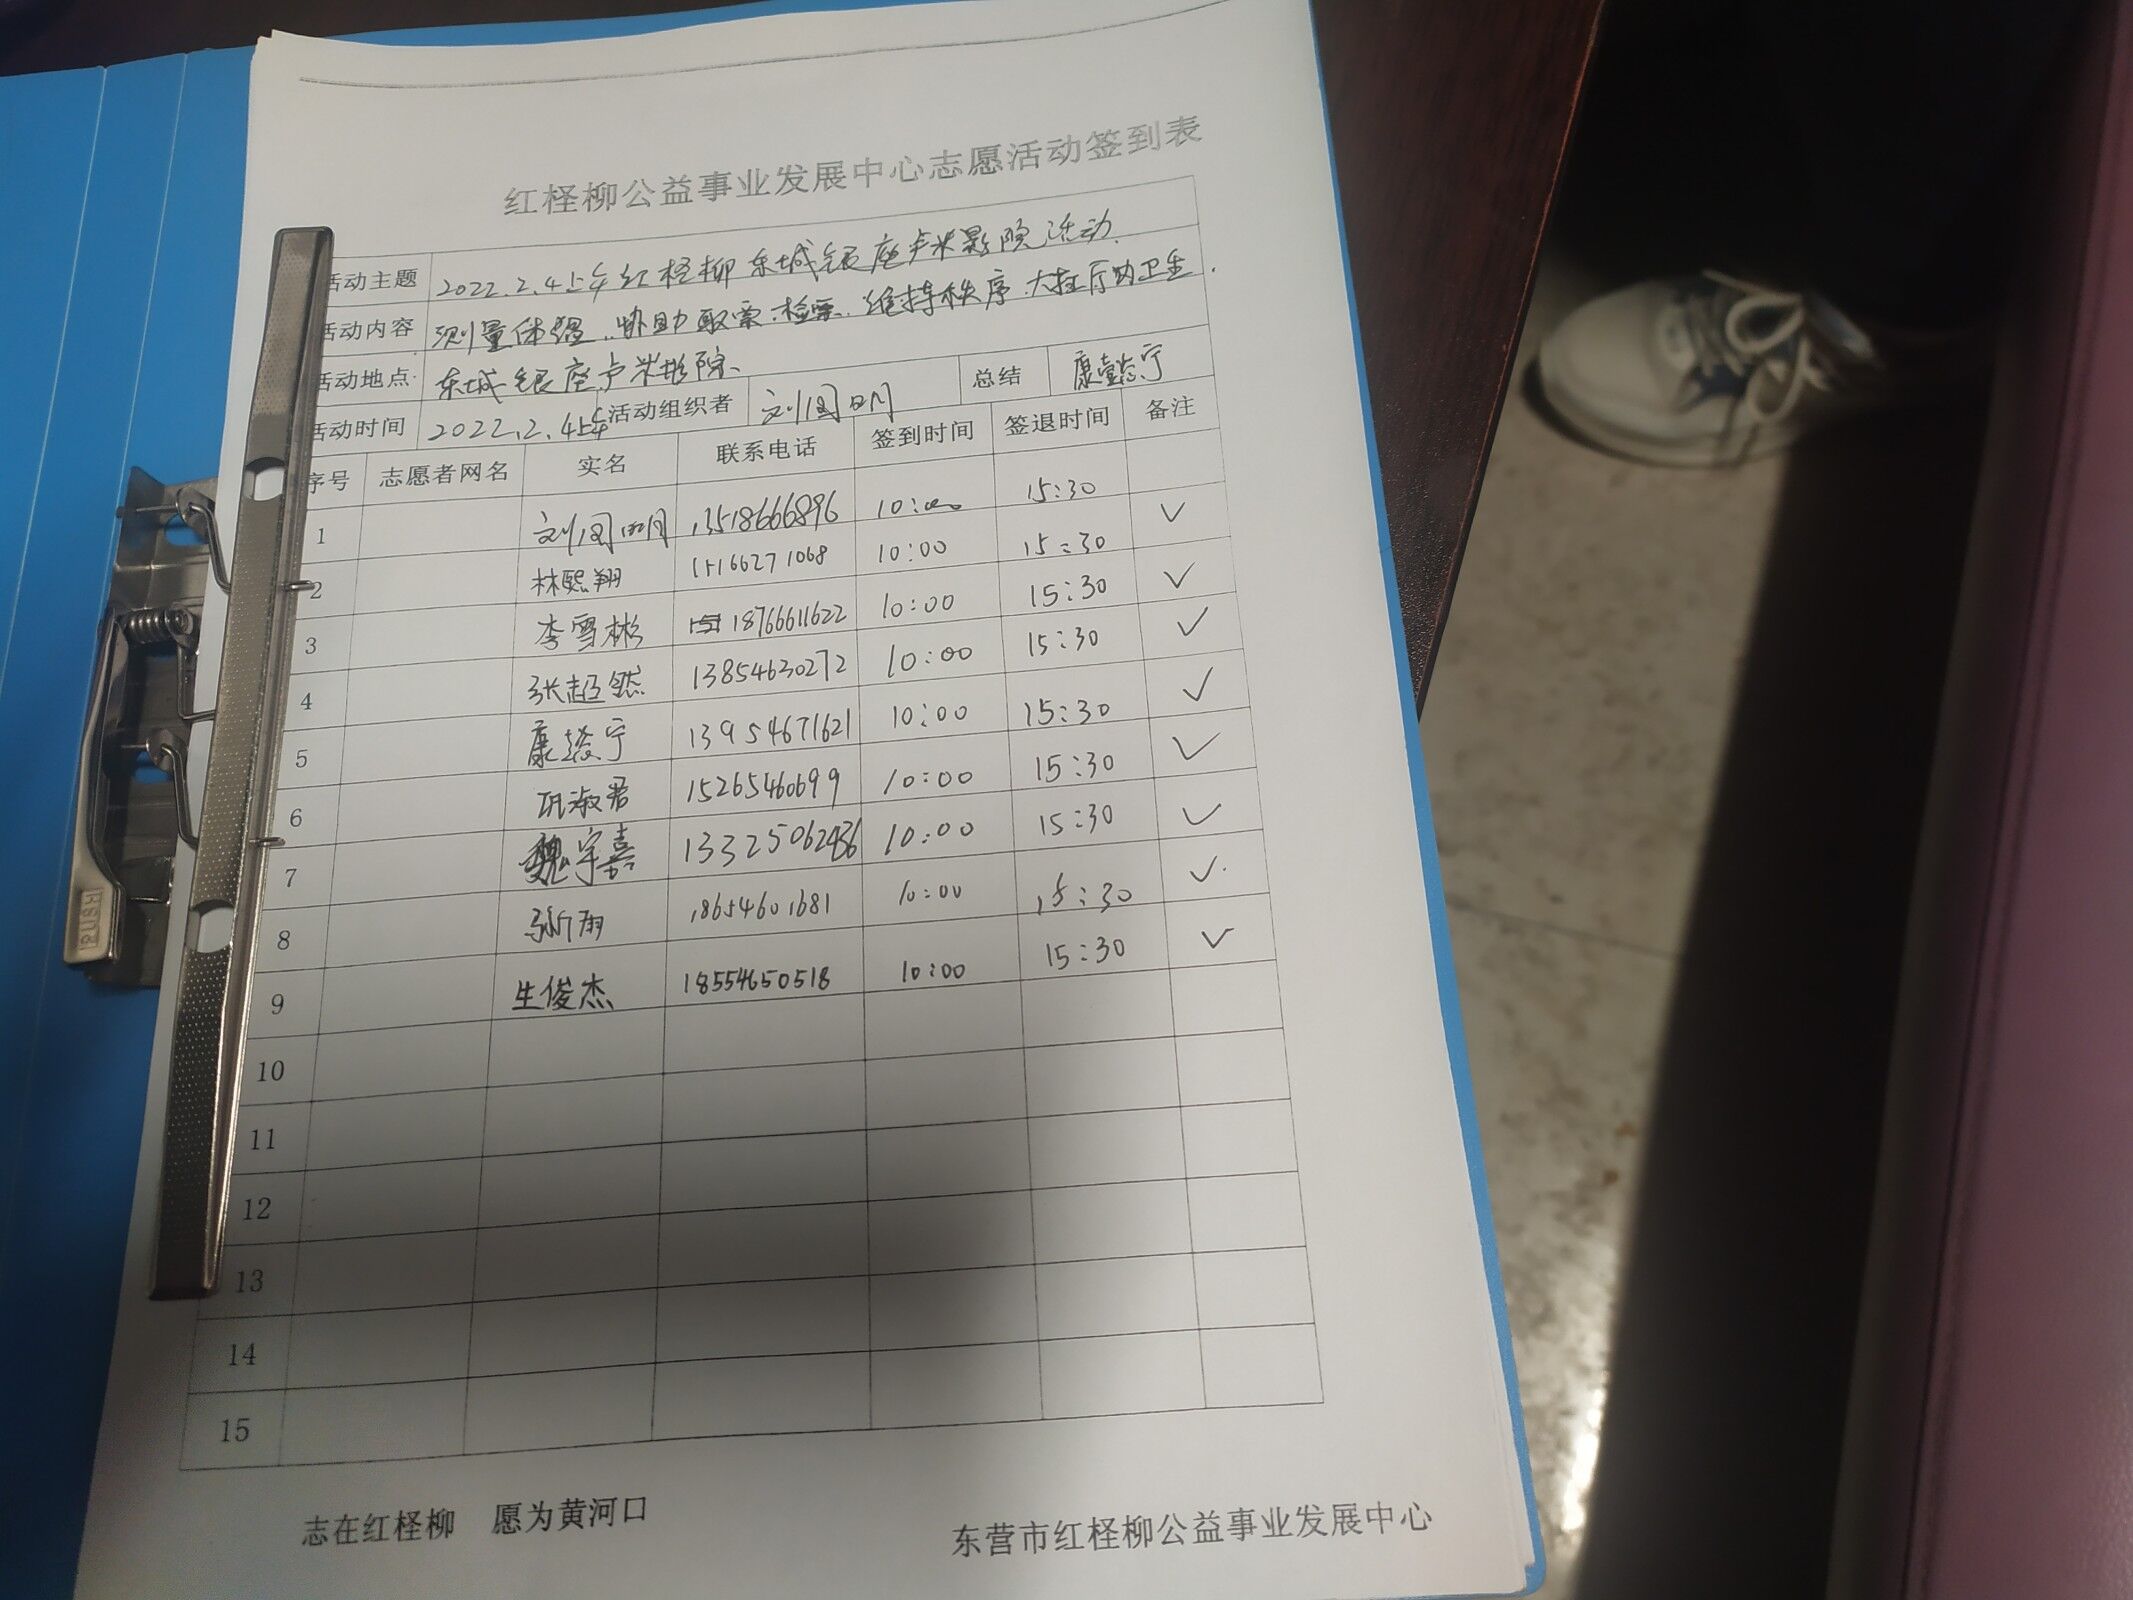 红柽柳公益事业发展中心志愿活动签到表
活动主题 2022.2.4上午红柽柳东城银座卢米影院活动.
活动内容 测量体温..协助取票.检票.维持秩序.大在厅的卫生.
活动地点: 东城银座卢米影院.
活动时间 2022.2.4上午 活动组织者 刘国明 总结 康懿宁
序号 志愿者网名 实名 联系电话 签到时间 签退时间 备注
1 刘国明 13518666896 10:00 15:30
2 林熙翔 15166271068 10:00 15:30 ✓
3 李雪彬 18766611622 10:00 15:30 ✓
4 张超然 13854630272 10:00 15:30 ✓
5 康懿宁 13954671621 10:00 15:30 ✓
6 巩淑君 15265460699 10:00 15:30 ✓
7 魏宇嘉 10:00 15:30 ✓
8 18654601681 10:00 15:30 ✓
9 生俊杰 18554650518 10:00 15:30 ✓
10
11
12
13
14
15
志在红柽柳 愿为黄河口
东营市红柽柳公益事业发展中心
PUSH